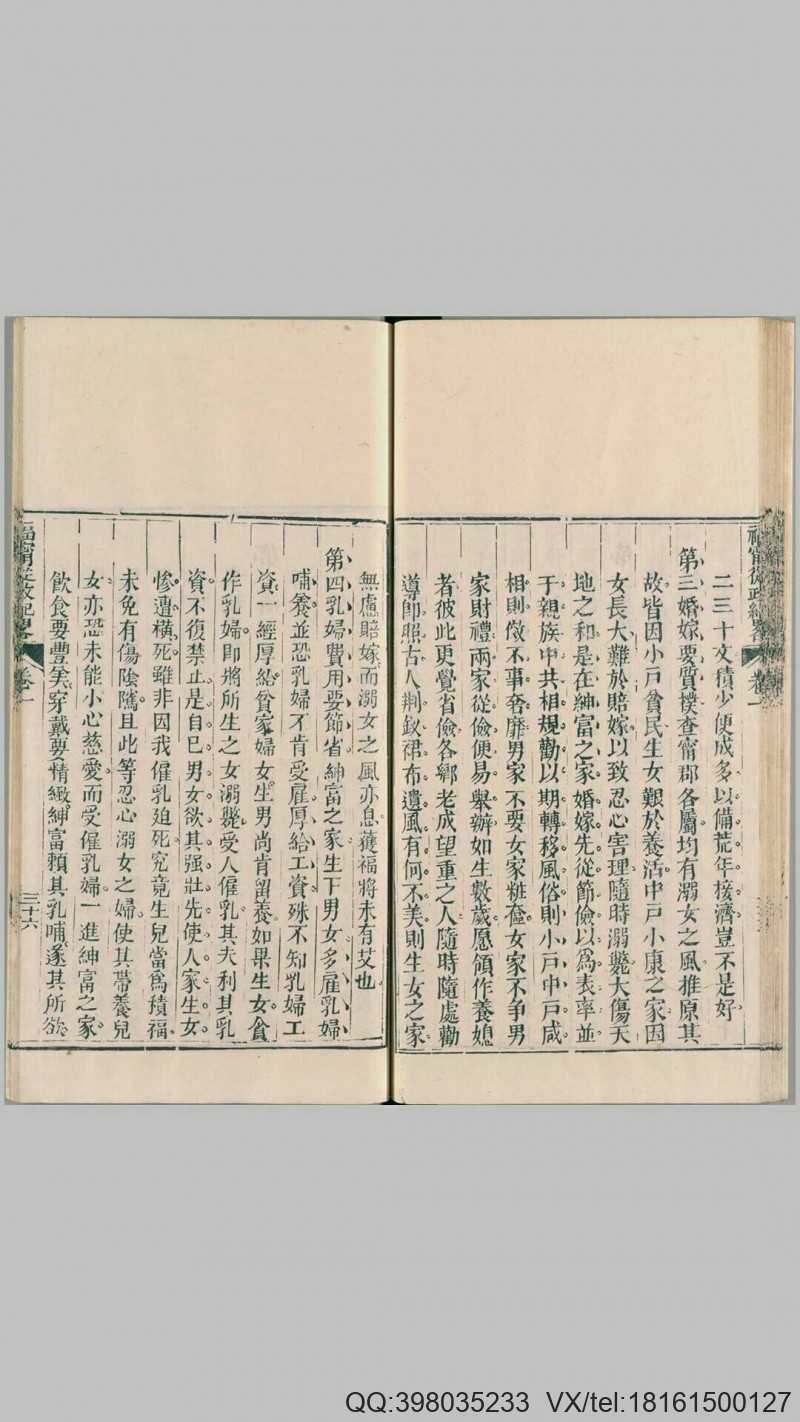 二三十文積少便成多以備荒年接濟豈不是好
第三婚嫁要質樸查甯郡各屬均有溺女之風推原其
故皆因小戶貧民生女艱於養活中戶小康之家因
女長大難於賠嫁以致忍心害理隨時溺斃大傷天
地之和是在紳富之家婚嫁先從節儉以爲表率並
于親族中共相規勸以期轉移風俗則小戶中戶咸
相則傚不事奢靡男家不要女家粧奩女家不爭男
家財禮兩家從儉便易舉辦如生數歲愿領作養媳
者彼此更覺省儉各鄉老成望重之人隨時隨處勸
導師照古人荆釵裙布遺風有何不美則生女之家
無慮賠嫁而溺女之風亦息獲福將未有艾也
第四乳婦費用要節省紳富之家生下男女多雇乳婦
哺養並恐乳婦不肯受雇厚給工資殊不知乳婦工
資一經厚給貧家婦女生男尚肯留養如果生女貪
作乳婦即將所生之女溺斃受人僱乳其夫利其乳
資不復禁止是自已男女欲其强壯先使人家生女
慘遭橫死雖非因我僱乳迫死究竟生兒當爲積福
未免有傷陰隲且此等忍心溺女之婦使其帶養兒
女亦恐未能小心慈愛而受僱乳婦一進紳富之家
飲食要豐美穿戴要情緻紳富賴其乳哺遂其所欲
福甯從政紀畧
卷一
三十六
QQ:398035233 VX/tel:18161500127